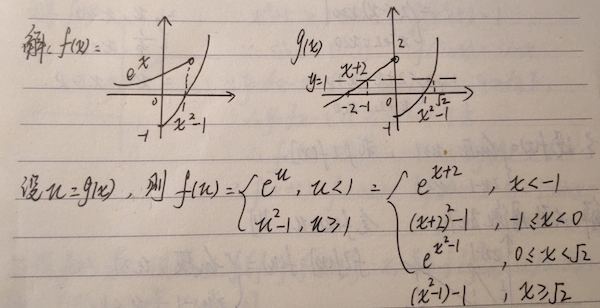 解: f(x) =
e^x
0
x²-1
-1
g(x)
2
y=1
x+2
-2 -1
0
√2
x²-1
-1
设 u=g(x), 则 f(u) = { e^u, u<1 = { e^{x+2}, x<-1
u²-1, u≥1 (x+2)²-1, -1≤x<0
e^{x²-1}, 0≤x<√2
(x²-1)-1, x≥√2